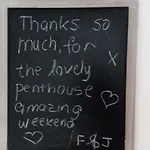 Thanks so
much, for
the lovely
penthouse
amazing
weekend
F&J